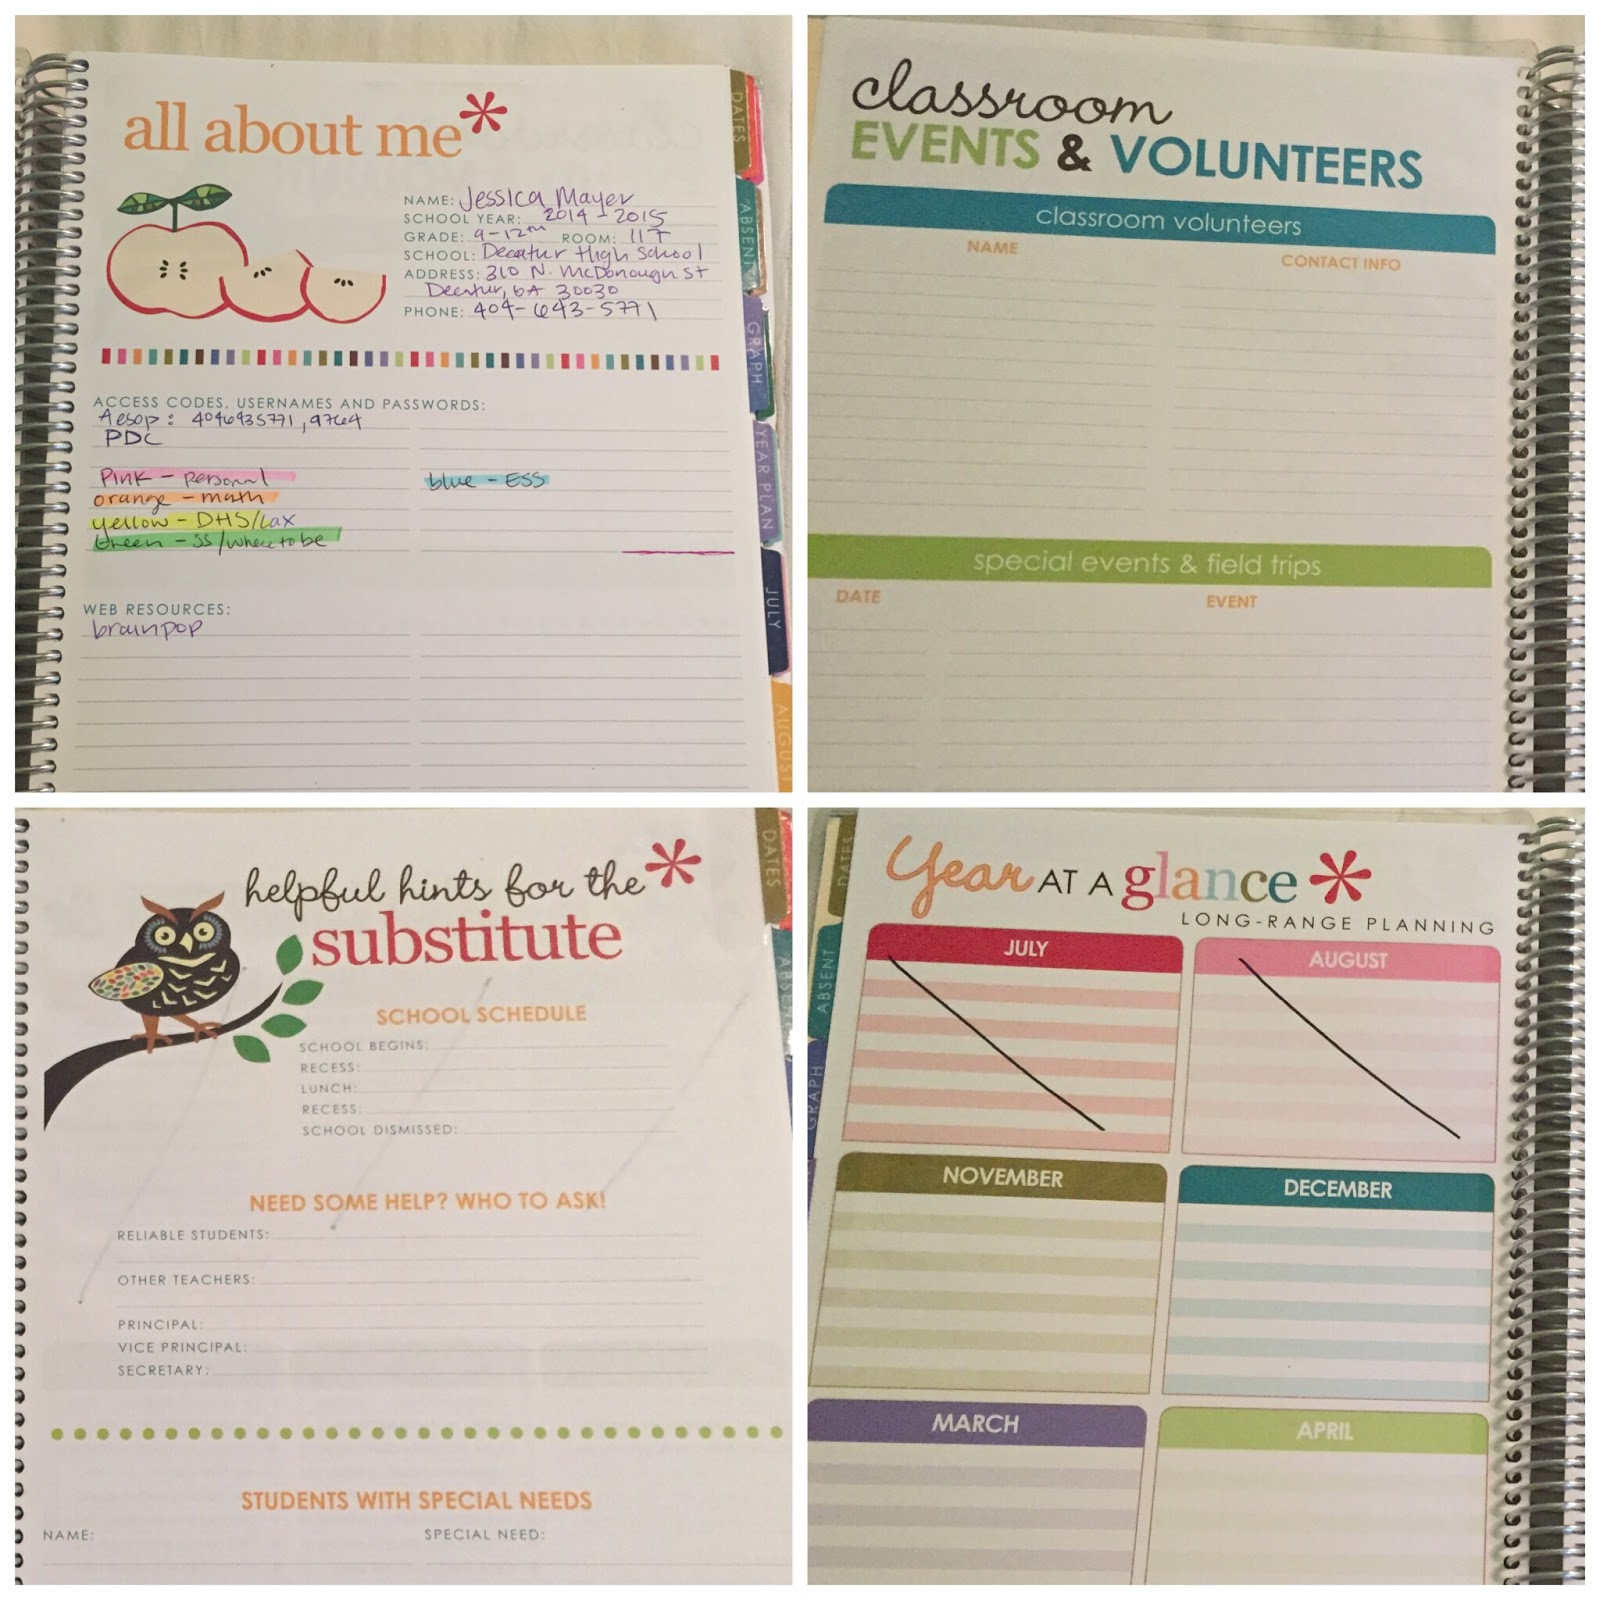 all about me*
NAME: Jessica Mayer
SCHOOL YEAR: 2014-2015
GRADE: 9-12th ROOM: 117
SCHOOL: Decatur High School
ADDRESS: 310 N. McDonough St
Decatur, GA 30030
PHONE: 404-643-5771
ACCESS CODES, USERNAMES AND PASSWORDS:
Aesop: 4046435771, 9764
PDC
Pink - personal
orange - math
yellow - DHS/Lax
Green - SS/where to be
blue - ESS
WEB RESOURCES:
brainpop
DATES
ABSENT
GRAPH
YEAR PLAN
JULY
AUGUST
classroom
EVENTS & VOLUNTEERS
classroom volunteers
NAME CONTACT INFO
special events & field trips
DATE EVENT
helpful hints for the*
substitute
SCHOOL SCHEDULE
SCHOOL BEGINS:
RECESS:
LUNCH:
RECESS:
SCHOOL DISMISSED:
NEED SOME HELP? WHO TO ASK!
RELIABLE STUDENTS:
OTHER TEACHERS:
PRINCIPAL:
VICE PRINCIPAL:
SECRETARY:
STUDENTS WITH SPECIAL NEEDS
NAME: SPECIAL NEED:
DATES
ABSENT
Year AT A glance*
LONG-RANGE PLANNING
JULY AUGUST
NOVEMBER DECEMBER
MARCH APRIL
DATES
ABSENT
GRAPH